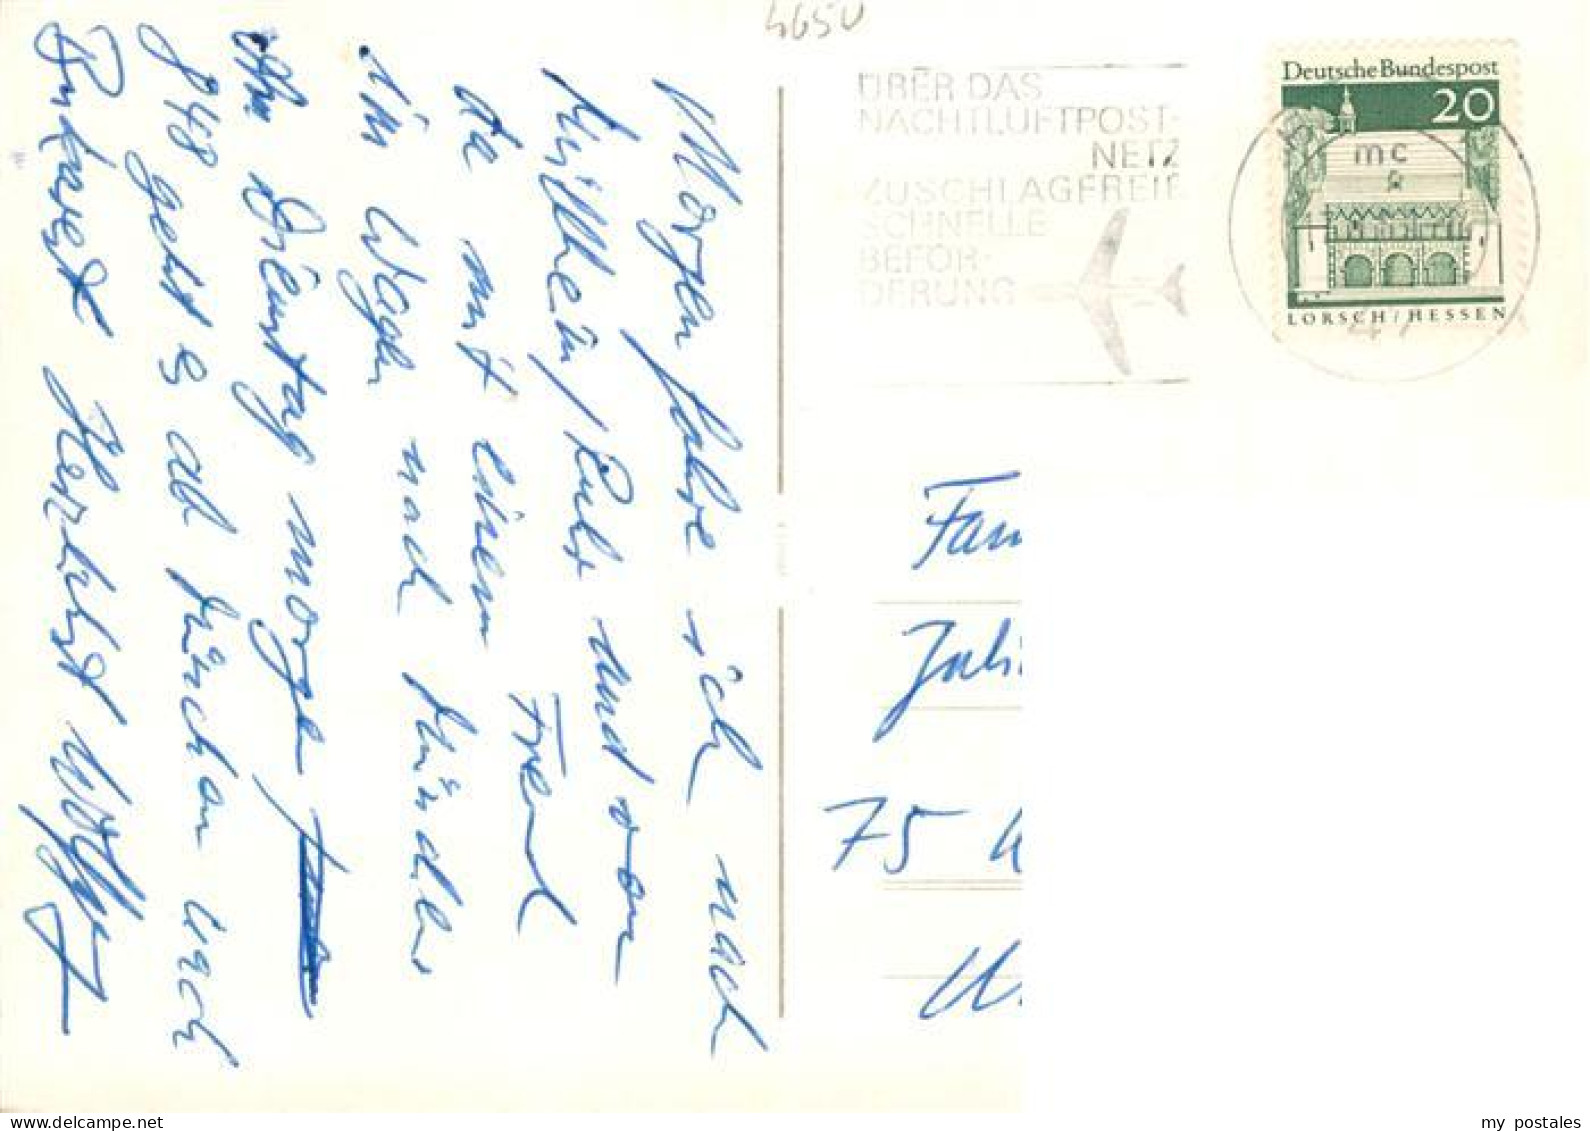 465U
ÜBER DAS
NACHTLUFTPOST-
NETZ
ZUSCHLAGFREIE
SCHNELLE
BEFÖR-
DERUNG
Deutsche Bundespost
20
mc
LORSCH / HESSEN
Morgen fahre ich nach
Mülheim/Ruhr und von
da mit einem Freund
im Wagen nach München
Am Dienstag morgen
8 48 geht es ab München nach
Bukarest Herzlichst
Fam
Juli
75
my postales